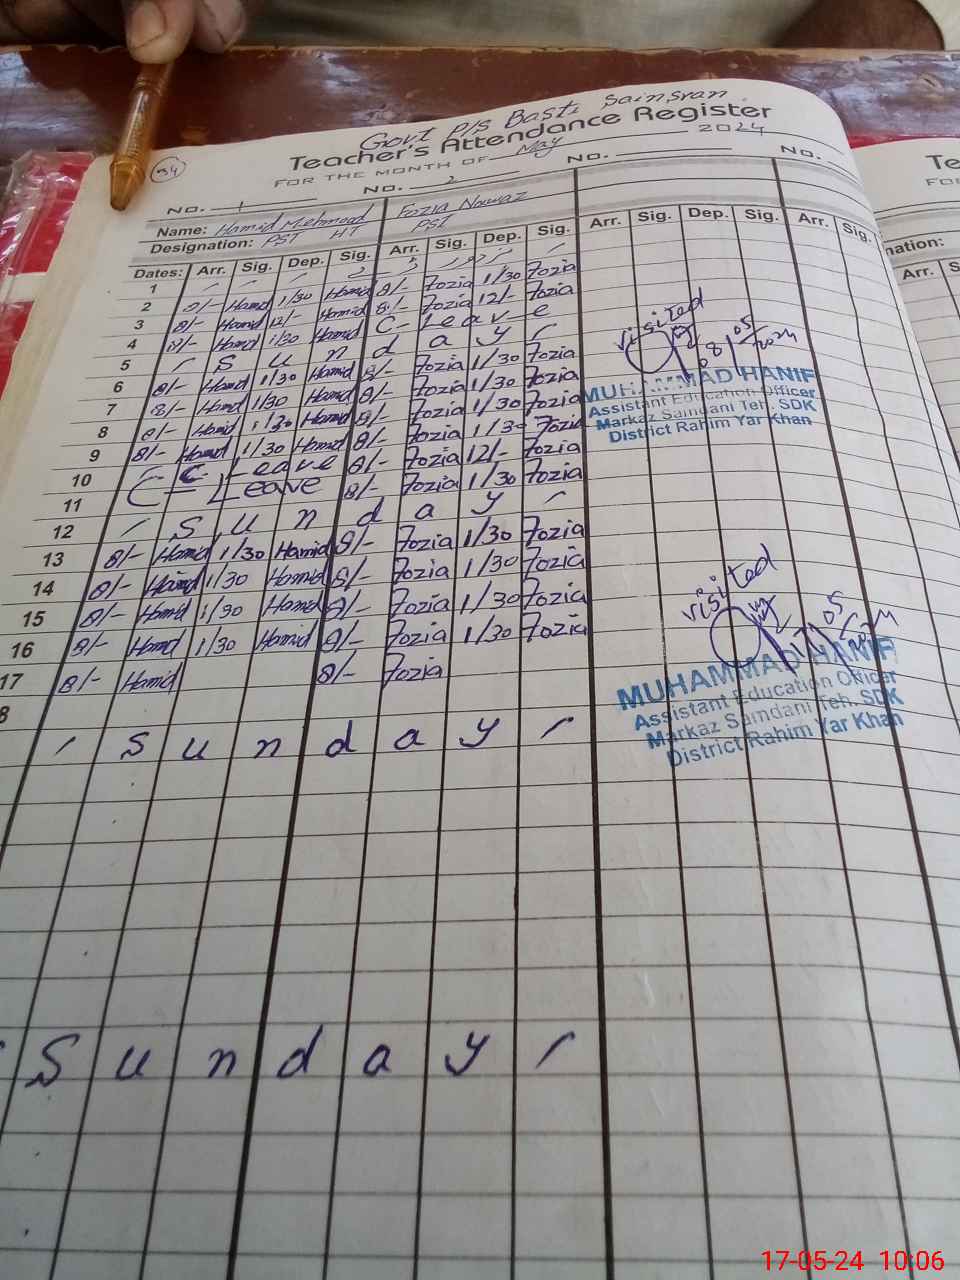 Govt P/s Basti Sainsran
Teacher's Attendance Register
34
FOR THE MONTH OF May 2024
NO. 1 NO. 2 NO. NO.
Name: Hamid Mehmood Fozia Nawaz
Designation: PST HT PST
Dates: Arr. Sig. Dep. Sig. Arr. Sig. Dep. Sig. Arr. Sig. Dep. Sig. Arr. Sig.
1
2 8/- Hamid 1/30 Hamid 8/- Fozia 1/30 Fozia
3 8/- Hamid 12/- Hamid 8/- Fozia 12/- Fozia
4 8/- Hamid 1/30 Hamid C- Leave
5 Sunday
6 8/- Hamid 1/30 Hamid 8/- Fozia 1/30 Fozia
7 8/- Hamid 1/30 Hamid 8/- Fozia 1/30 Fozia
8 8/- Hamid 1/30 Hamid 8/- Fozia 1/30 Fozia
9 8/- Hamid 1/30 Hamid 8/- Fozia 1/30 Fozia
10 C- Leave 8/- Fozia 12/- Fozia
11 C- Leave 8/- Fozia 1/30 Fozia
12 Sunday
13 8/- Hamid 1/30 Hamid 8/- Fozia 1/30 Fozia
14 8/- Hamid 1/30 Hamid 8/- Fozia 1/30 Fozia
15 8/- Hamid 1/30 Hamid 8/- Fozia 1/30 Fozia
16 8/- Hamid 1/30 Hamid 8/- Fozia 1/30 Fozia
17 8/- Hamid 8/- Fozia
8
Sunday
Sunday
visited
08/05/2024
MUHAMMAD HANIF
Assistant Education Officer
Markaz Samdani Teh. SDK
District Rahim Yar Khan
visited
MUHAMMAD HANIF
Assistant Education Officer
Markaz Samdani Teh. SDK
District Rahim Yar Khan
Te
FO
nation:
Arr. S
17-05-24 10:06